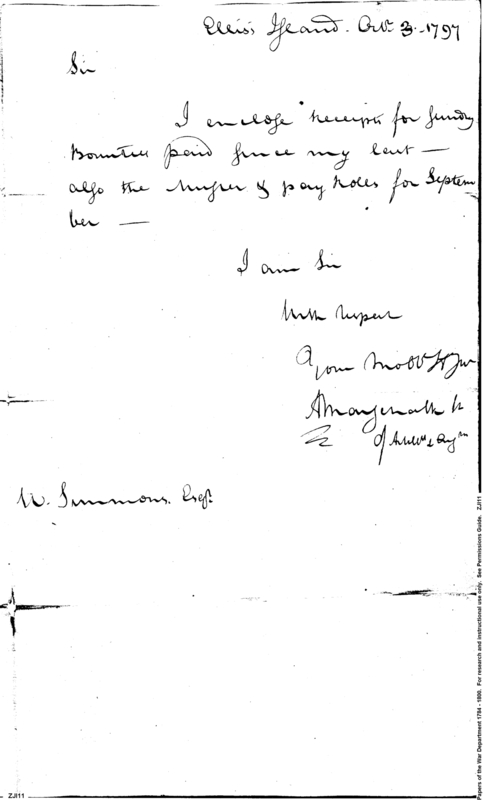 Ellis's Island. Octr. 3. 1797
Sir
I enclose Receipts for sundry
Bounties paid since my last —
also the Muster & pay Roles for Septem
ber —
I am Sir
With respect
Your Most Ob St
W. Simmons. Esqr.
ZJI11
Papers of the War Department 1784 - 1800. For research and instructional use only. See Permissions Guide. ZJI11